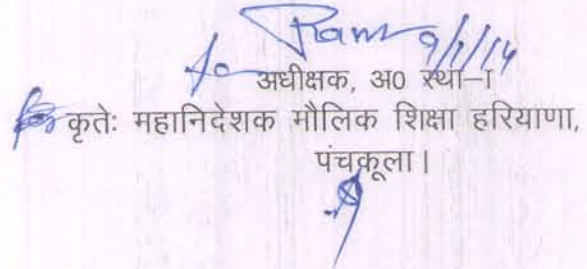 Ram 9/1/14
अधीक्षक, अ0 स्था–I
कृतेः महानिदेशक मौलिक शिक्षा हरियाणा,
पंचकूला।